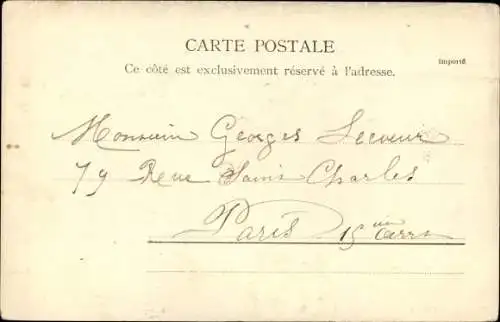 CARTE POSTALE
Ce côté est exclusivement réservé à l'adresse.
Importé
Monsieur Georges Lecoeur
79 Rue Saint Charles
Paris 15me Arr